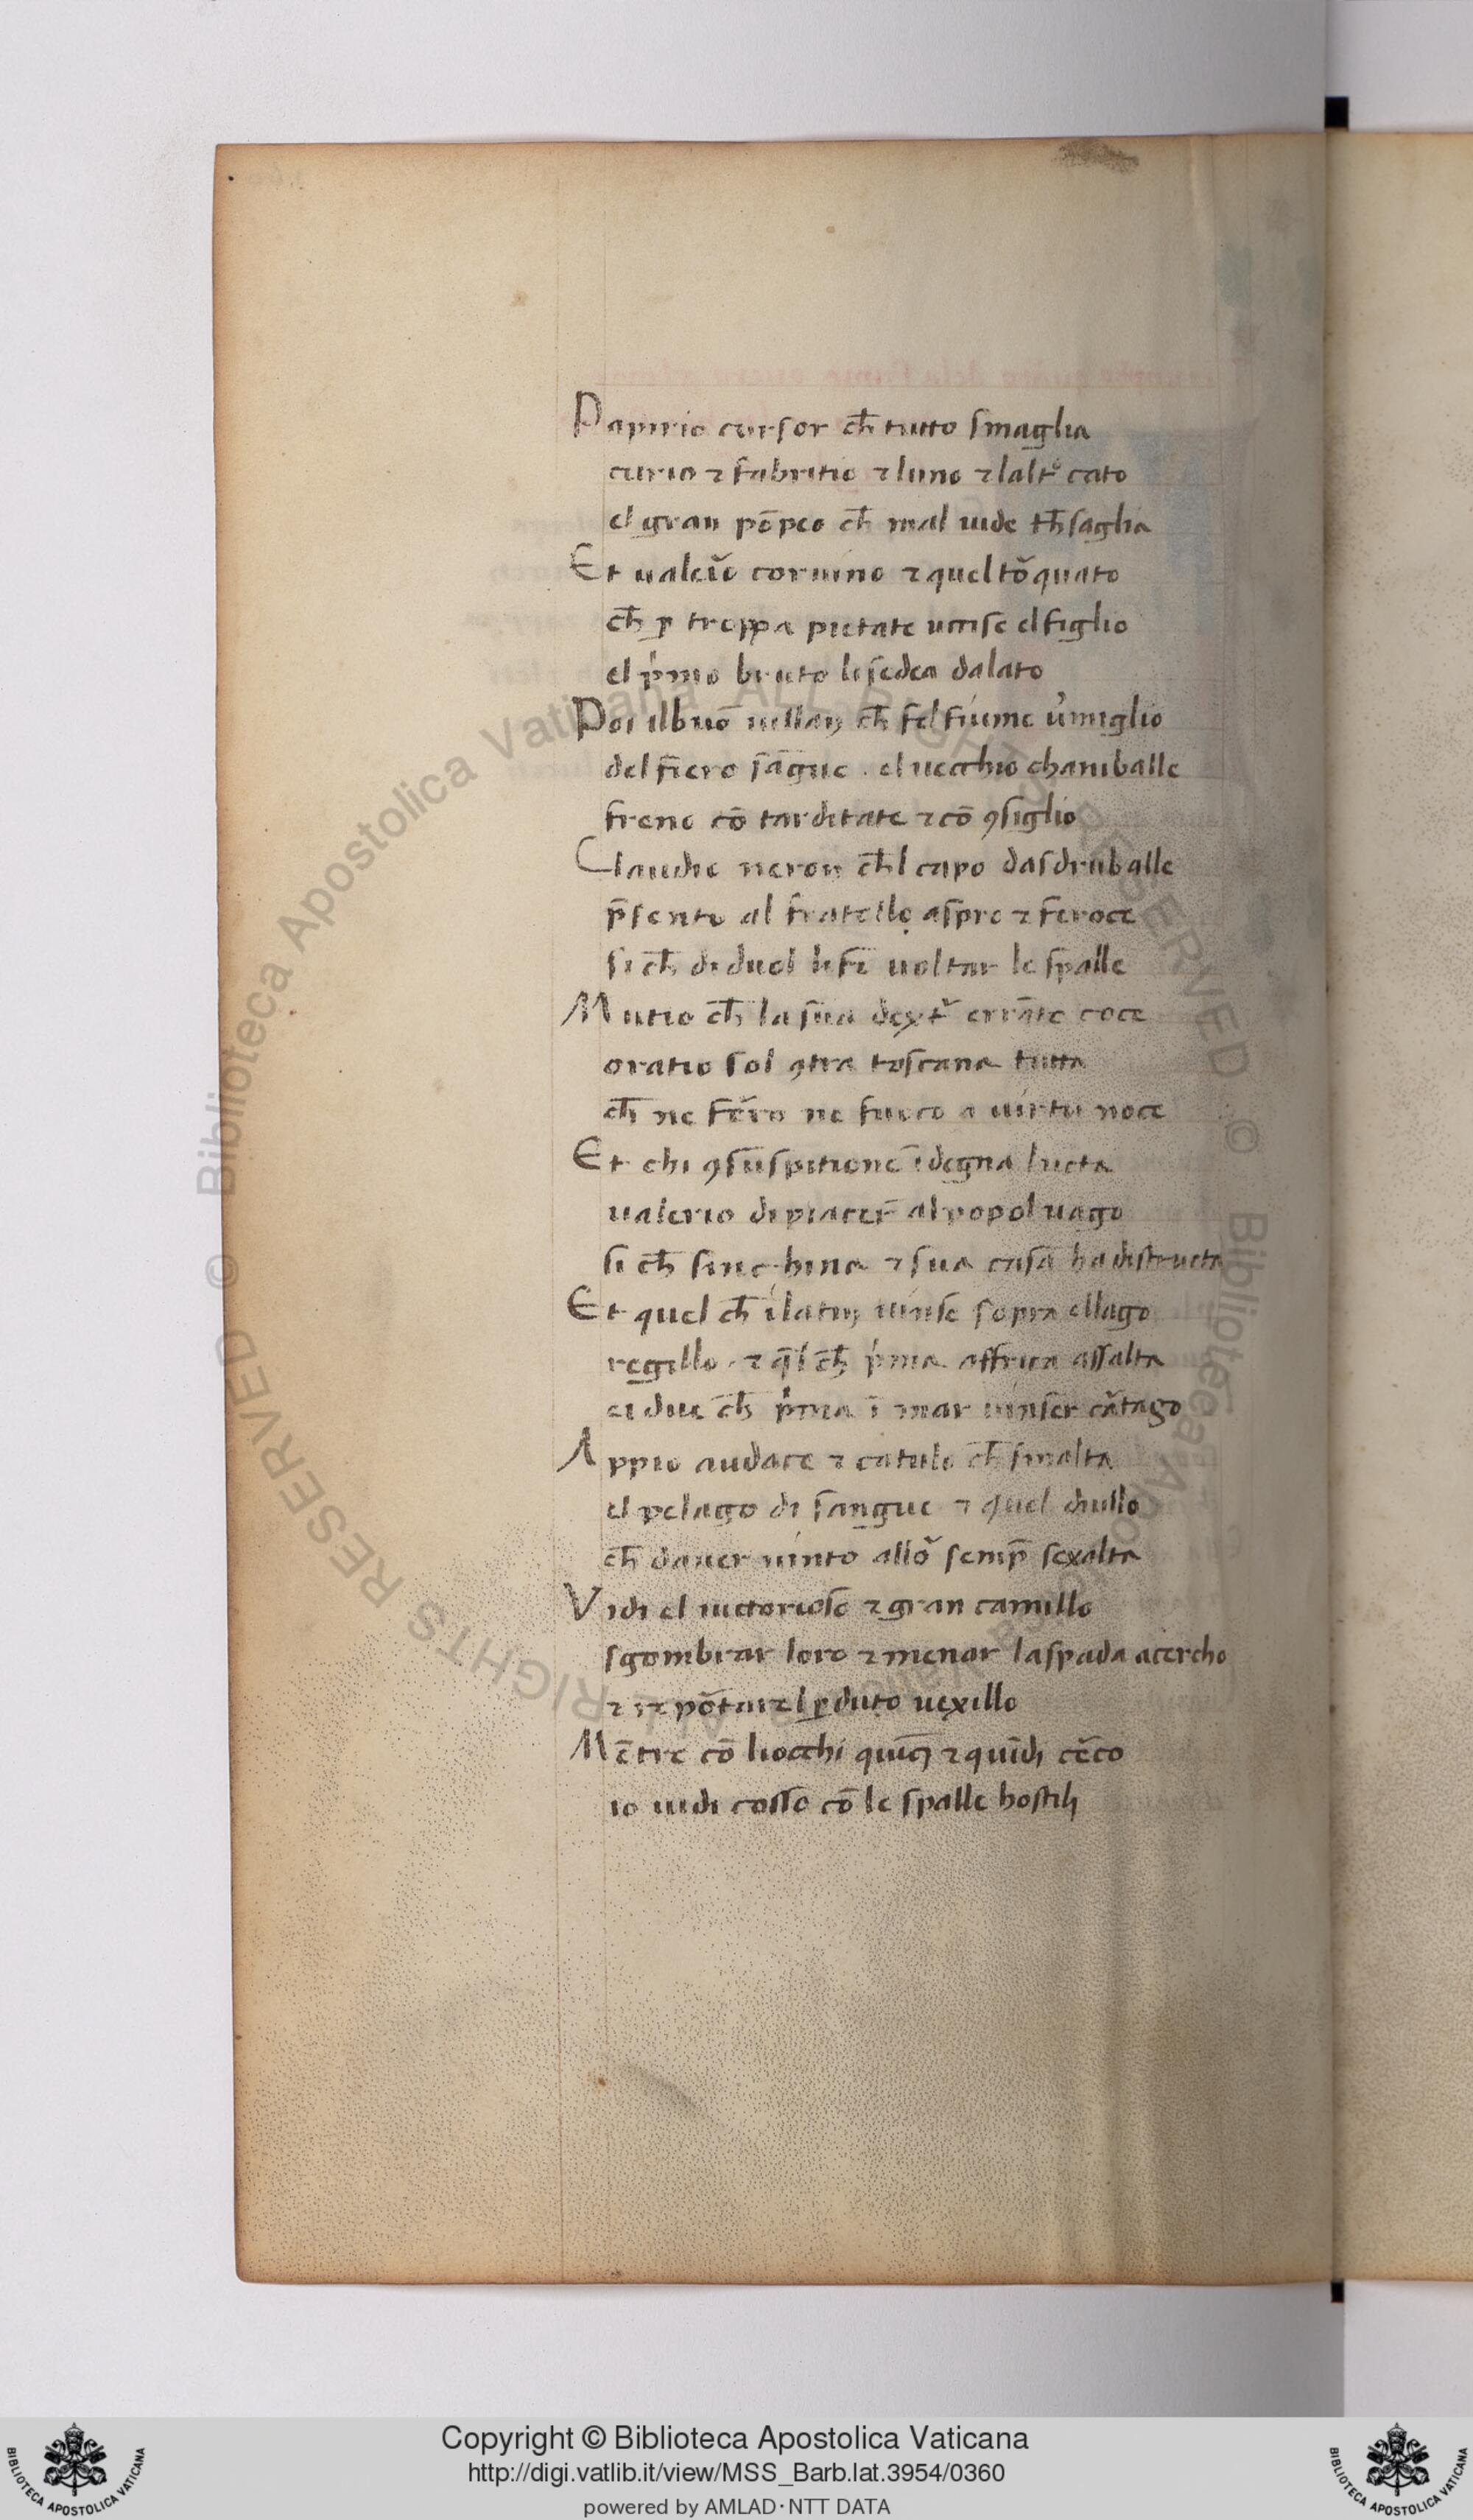 Papirio cursor ch̄ tutto smaglia
curio ⁊ fabritio ⁊ luno ⁊ laltº cato
el gran pōpeo ch̄ mal uide th̄saglia
Et ualeio coruino ⁊ quel tōquato
ch̄ ꝑ troppa pietate uccise el figlio
el pͥmo bruto li sedea dalato
Poi il buō uillaꝫ ch̄ fel fiume u̓miglio
del fiero sāgue . el uecchio chaniballe
freno cō tarditate ⁊ cō ꝯsiglio
Claudio neron ch̄l capo dasdruballe
p̄sento al fratello aspro ⁊ feroce
si ch̄ di duol li fe uoltar le spalle
Mutio ch̄ la sua dext̓ errāte coce
oratio sol ꝯtra toscana tutta
ch̄ ne fe̓ro ne fuoco a uirtu noce
Et chi ꝯ suspitione īdegna lucta
ualerio di piacer al popol uago
si ch̄ sinchina ⁊ sua casa ha distructa
Et quel ch̄ ilatinj uinse sopra ellago
regillo . ⁊ q̄l ch̄ pͥma affrica assalta
ei due ch̄ pͥma ī mar uinser cātago
Appio audace ⁊ catulo ch̄ smalta
el pelago di sangue ⁊ quel dullo
ch̄ dauer uinto allo̓ semp̄ sexalta
Vidi el uictorioso ⁊ gran camillo
sgombrar loro ⁊ menar laspada acercho
⁊ re po̓tarne l ꝑduto uexillo
Mētre cō liocchi quīcj ⁊ quīdi ce̓co
io uidi cosso cō le spalle hostilj
Copyright © Biblioteca Apostolica Vaticana
http://digi.vatlib.it/view/MSS_Barb.lat.3954/0360
powered by AMLAD·NTT DATA
BIBLIOTECA APOSTOLICA VATICANA
BIBLIOTECA APOSTOLICA VATICANA
© Biblioteca Apostolica Vaticana ALL RIGHTS RESERVED © Biblioteca Apostolica Vaticana ALL RIGHTS RESERVED